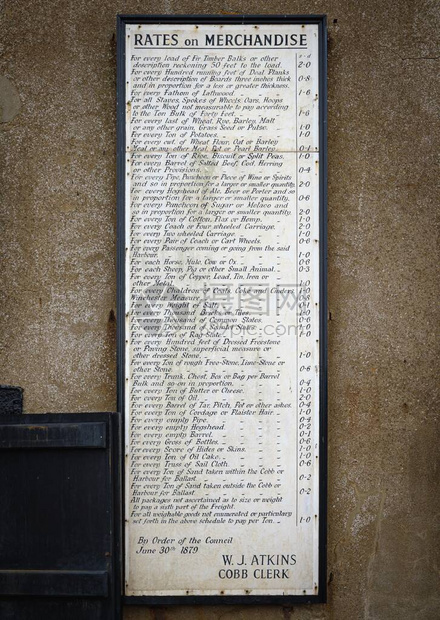 RATES on MERCHANDISE
s d
For every load of Fir Timber Balks or other
description reckoning 50 feet to the load 2-0
For every Hundred running feet of Deal Planks
or other description of Boards three inches thick 0-8
and in proportion for a less or greater thickness.
For every Fathom of Lathwood 1-6
For all Staves, Spokes of Wheels, Oars, Hoops
or other Wood not measurable to pay according
to the Ton Bulk of Forty Feet 1-6
For every last of Wheat, Rye, Barley, Malt
or any other grain, Grass Seed or Pulse 1-0
For every Ton of Potatoes 1-0
For every cwt. of Wheat Flour, Oat or Barley
Meal or any other Meal, Pot or Pearl Barley 0-1
For every Ton of Rice, Biscuit or Split Peas 1-0
For every Barrel of Salted Beef, Cod, Herring
or other Provisions 0-4
For every Pipe, Puncheon or Piece of Wine or Spirits
and so in proportion for a larger or smaller quantity 2-0
For every Hogshead of Ale, Beer or Porter and so
in proportion for a larger or smaller quantity. 0-6
For every Puncheon of Sugar or Molasses and
so in proportion for a larger or smaller quantity. 2-0
For every Ton of Cotton, Flax or Hemp. 1-0
For every Coach or Four wheeled Carriage. 2-0
For every Two wheeled Carriage 1-0
For every Pair of Coach or Cart Wheels. 0-6
For every Passenger coming or going from the said
Harbour 1-0
For each Horse, Mule, Cow or Ox 0-6
For each Sheep, Pig or other Small Animal 0-3
For every Ton of Copper, Lead, Tin, Iron or
other Metal
For every Chaldron of Coals, Coke and Cinders
Winchester Measure
For every Weight of Salt
For every Thousand
For every Thousand of Common Slates
For every Thousand of Slates
For every Ton of Rag Slate
For every Hundred feet of Dressed Freestone
or Paving Stone, superficial measure or
other dressed Stone 1-0
For every Ton of rough Free-Stone, Lime-Stone or
other Stone 0-6
For every Trunk, Chest, Box or Bag per Barrel
Bulk and so on in proportion. 0-4
For every Ton of Butter or Cheese. 1-0
For every Ton of Oil 2-0
For every Barrel of Tar, Pitch, Pot or other ashes. 0-4
For every Ton of Cordage or Plaister Hair 1-0
For every empty Pipe. 0-4
For every empty Hogshead. 0-2
For every empty Barrel. 0-1
For every Gross of Bottles. 0-6
For every Score of Hides or Skins. 1-0
For every Ton of Oil Cake. 1-0
For every Truss of Sail Cloth. 0-6
For every Ton of Sand taken within the Cobb or
Harbour for Ballast 0-2
For every Ton of Sand taken outside the Cobb or
Harbour for Ballast 0-2
All packages not ascertained as to size or weight
to pay a sixth part of the Freight.
For all weighable goods not enumerated or particulary
set forth in the above schedule to pay per Ton 1-0
By Order of the Council
June 30th 1879
W. J. ATKINS
COBB CLERK